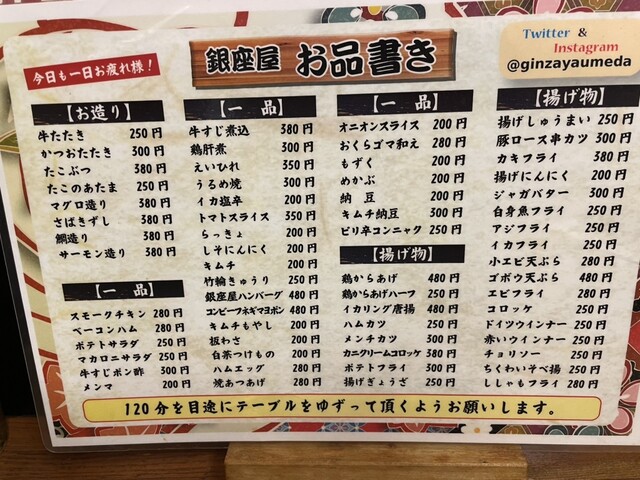 今日も一日お疲れ様!
銀座屋 お品書き
Twitter &
Instagram
@ginzayaumeda
【お造り】
牛たたき 250円
かつおたたき 300円
たこぶつ 380円
たこのあたま 250円
マグロ造り 380円
さばきずし 380円
鯛造り 380円
サーモン造り 380円
【一品】
スモークチキン 280円
ベーコンハム 280円
ポテトサラダ 250円
マカロニサラダ 250円
牛すじポン酢 300円
メンマ 200円
【一品】
牛すじ煮込 380円
鶏肝煮 300円
えいひれ 350円
うるめ焼 300円
イカ塩辛 200円
トマトスライス 350円
らっきょ 200円
しそにんにく 200円
キムチ 200円
竹輪きゅうり 250円
銀座屋ハンバーグ 480円
コンビーフネギマヨポン 480円
キムチもやし 250円
板わさ 200円
白菜つけもの 200円
ハムエッグ 280円
焼あつあげ 280円
【一品】
オニオンスライス 200円
おくらゴマ和え 280円
もずく 200円
めかぶ 200円
納豆 200円
キムチ納豆 300円
ピリ辛コンニャク 250円
【揚げ物】
鶏からあげ 480円
鶏からあげハーフ 250円
イカリング唐揚 480円
ハムカツ 250円
メンチカツ 300円
カニクリームコロッケ 380円
ポテトフライ 300円
揚げぎょうざ 250円
【揚げ物】
揚げしゅうまい 250円
豚ロース串カツ 300円
カキフライ 380円
揚げにんにく 200円
ジャガバター 300円
白身魚フライ 250円
アジフライ 250円
イカフライ 250円
小エビ天ぷら 380円
ゴボウ天ぷら 480円
エビフライ 280円
コロッケ 250円
ドイツウインナー 250円
赤いウインナー 250円
チョリソー 250円
ちくわいそべ揚 250円
ししゃもフライ 280円
120分を目途にテーブルをゆずって頂くようお願いします。